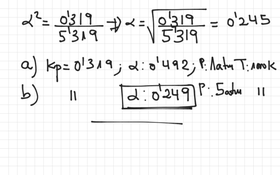 α² = 0'319 / 5'319 → α = √(0'319 / 5'319) = 0'245
a) Kp = 0'319 ; α : 0'492 ; P : 1atm T : 1000K
b) " α : 0'249 P : 5atm "